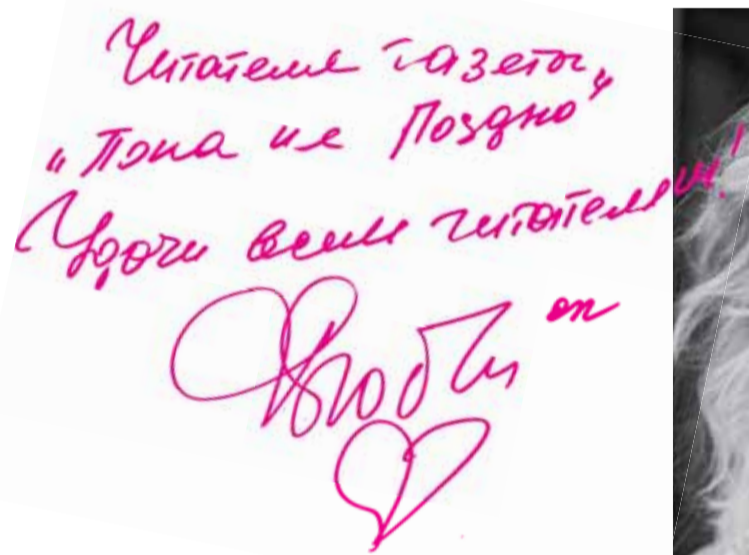 Читателям газеты
"Пока не Поздно"
Удачи всем читателям!
от
Любы